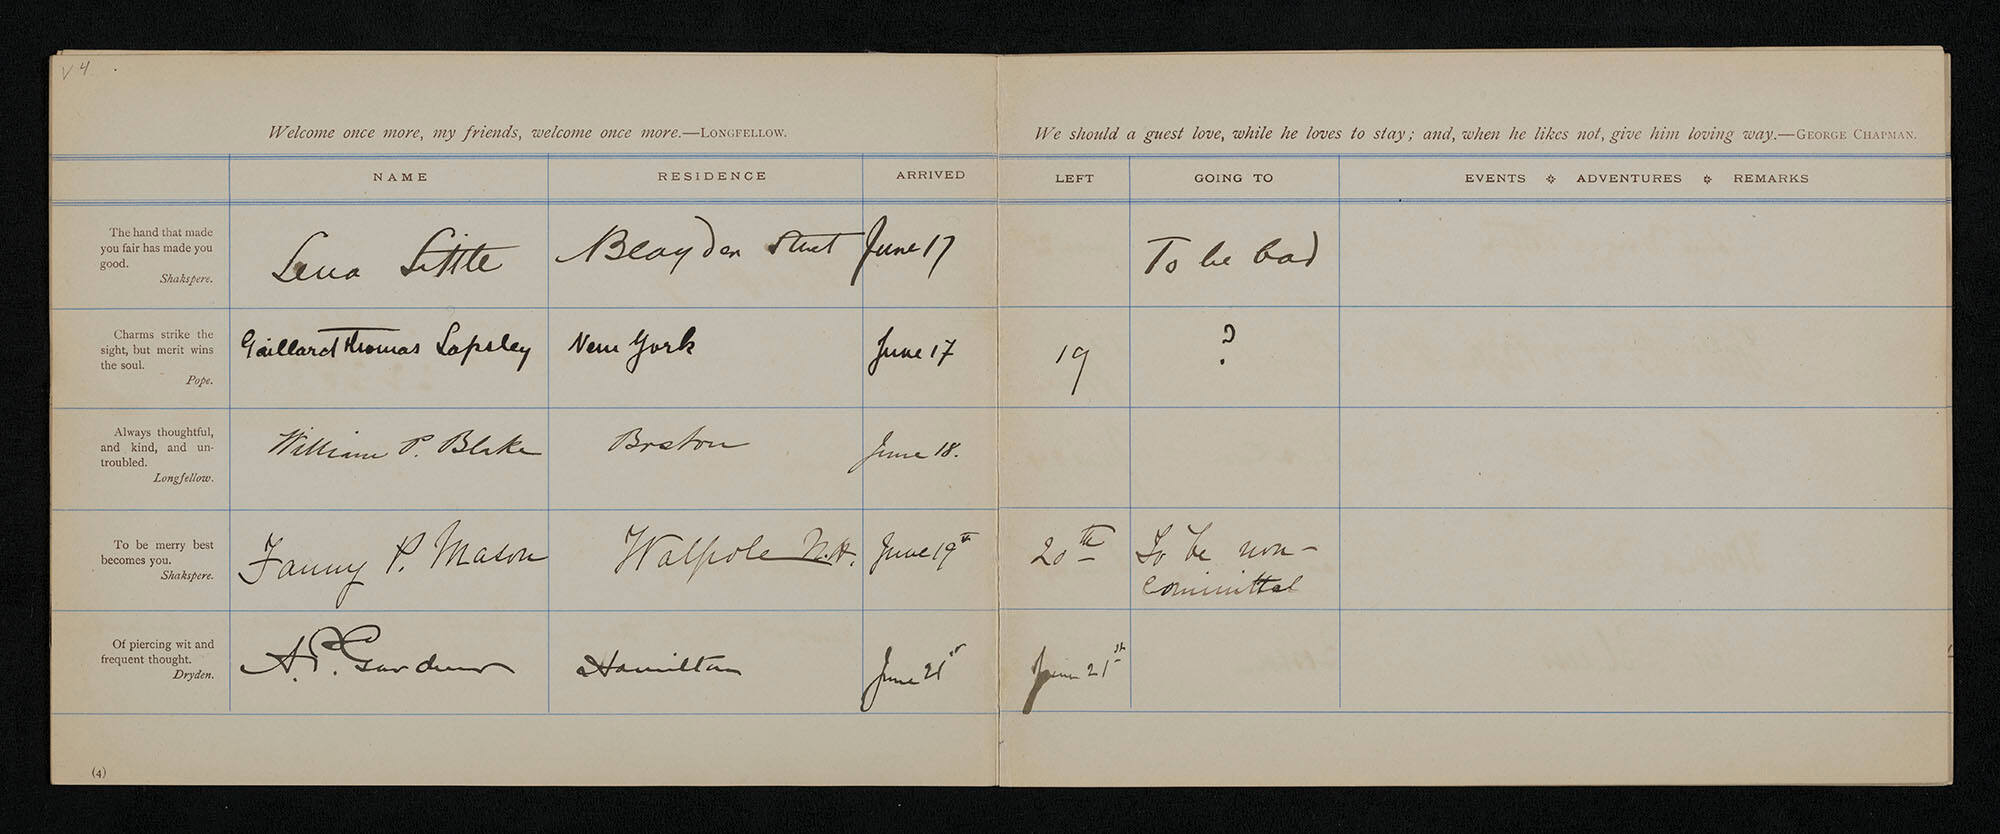 V 4
Welcome once more, my friends, welcome once more.—LONGFELLOW.
We should a guest love, while he loves to stay; and, when he likes not, give him loving way.—GEORGE CHAPMAN.
NAME RESIDENCE ARRIVED LEFT GOING TO EVENTS ADVENTURES REMARKS
The hand that made
you fair has made you
good.
Shakspere.
Lena Little Blagden Street June 17 To be bad
Charms strike the
sight, but merit wins
the soul.
Pope.
Gaillard Thomas Lapsley New York June 17 19 ?
Always thoughtful,
and kind, and un-
troubled.
Longfellow.
William P. Blake Boston June 18.
To be merry best
becomes you.
Shakspere.
Fanny P. Mason Walpole N.H. June 19th 20th To be non-
committal
Of piercing wit and
frequent thought.
Dryden.
A. P. Gardner Hamilton June 21st June 21st
(4)